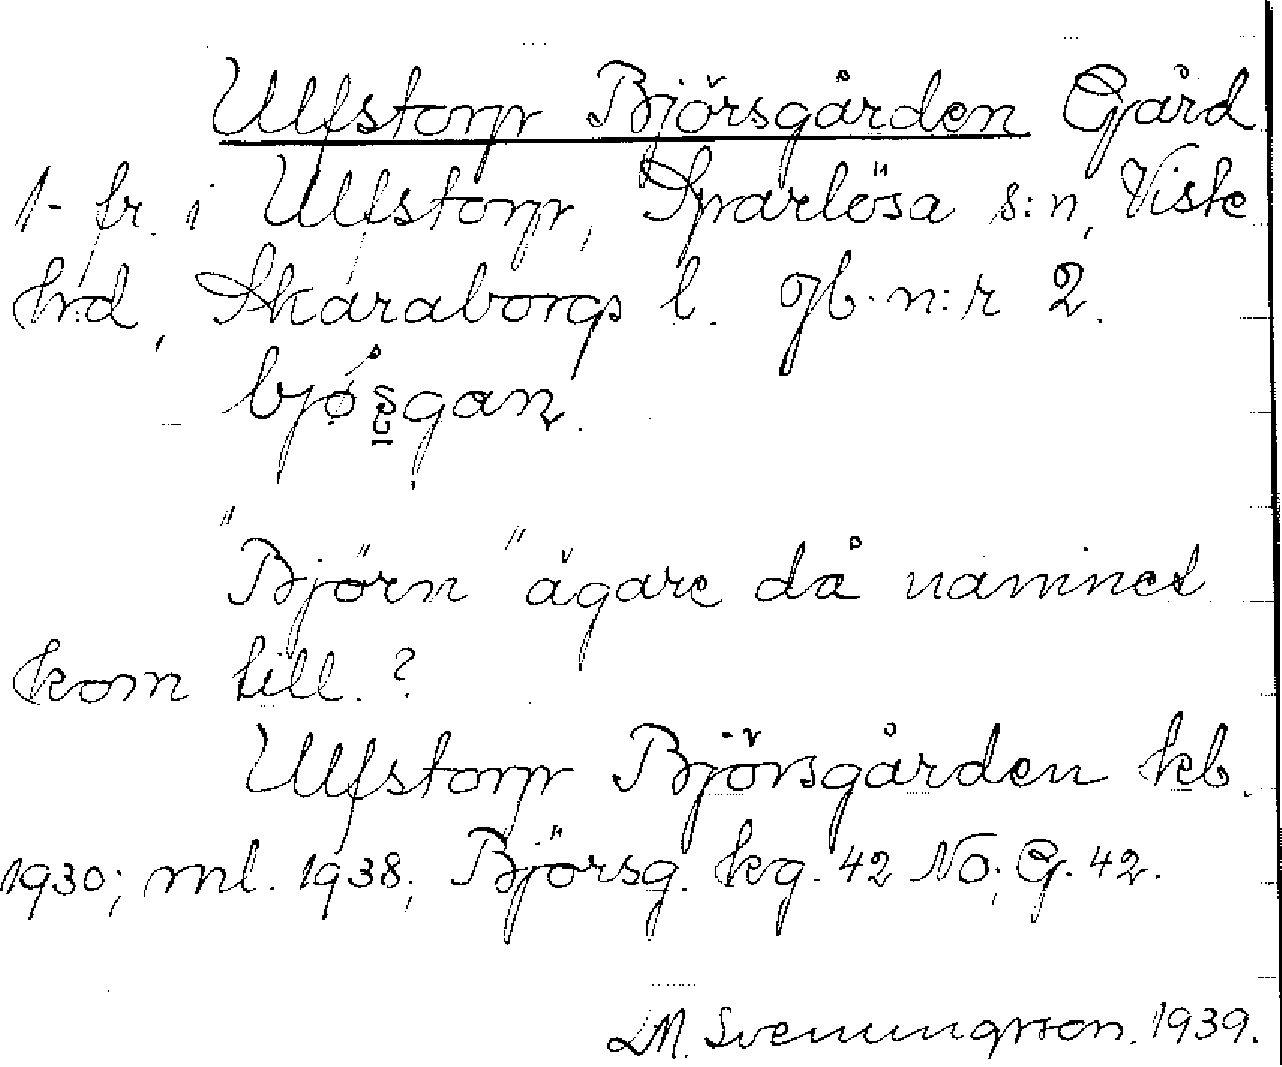 Ulfstorp Björsgården Gård
1- fr. i Ulfstorp, Sparlösa s:n, Viste
hd, Skaraborgs l. Jb. n:r 2.
bjösgan.
"Björn" ägare då namnet
kom till.?
Ulfstorp Björsgården kb.
1930; ml. 1938; Björsg. kg. 42 NO; G. 42.
LM. Svenungsson. 1939.